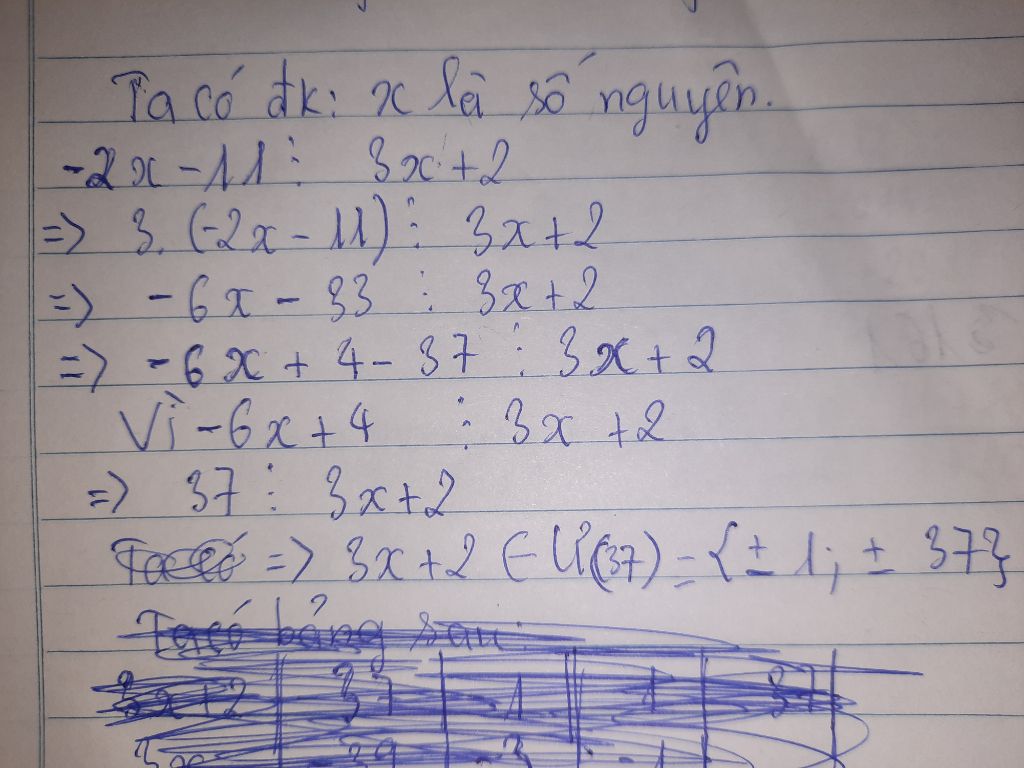 Ta có đk: x là số nguyên.
-2x - 11 ⋮ 3x + 2
=> 3. (-2x - 11) ⋮ 3x + 2
=> - 6x - 33 ⋮ 3x + 2
=> - 6x + 4 - 37 ⋮ 3x + 2
Vì - 6x + 4 ⋮ 3x + 2
=> 37 ⋮ 3x + 2
Ta có => 3x + 2 ∈ Ư(37) = {± 1; ± 37}
Ta có bảng sau:
3x+2 37 1 1 37